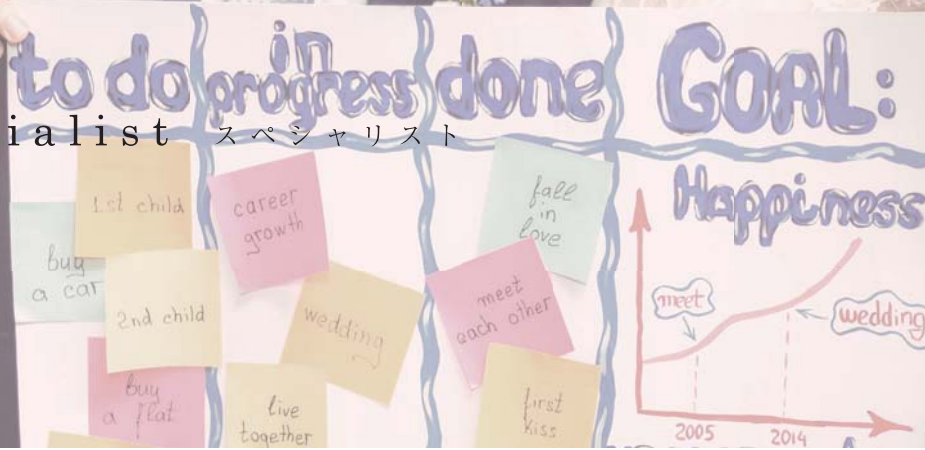 to do
in progress
done
GOAL:
ialist スペシャリスト
1st child
buy
a car
2nd child
buy
a flat
career
growth
wedding
live
together
fall
in
love
meet
each other
first
kiss
Happiness
meet
wedding
2005
2014